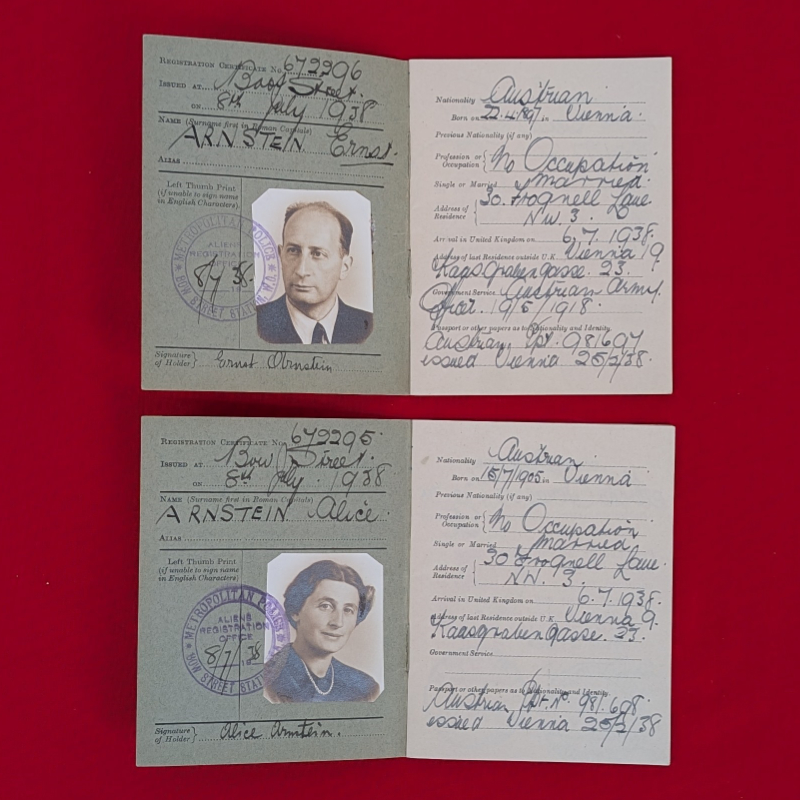 REGISTRATION CERTIFICATE No. 672296
ISSUED AT Bow Street.
ON 8th July 1938
NAME (Surname first in Roman Capitals)
ARNSTEIN Ernst.
ALIAS
Left Thumb Print
(if unable to sign name
in English Characters)
METROPOLITAN POLICE
ALIENS
REGISTRATION
OFFICE
8/7/38
BOW STREET STATION
Signature of Holder} Ernst Arnstein
Nationality Austrian
Born on 22.4.1897 in Vienna.
Previous Nationality (if any)
Profession or Occupation} No Occupation
Single or Married Married.
Address of Residence} 30. Frognell Lane
N.W. 3.
Arrival in United Kingdom on 6.7.1938.
Address of last Residence outside U.K. Vienna 19.
Kaasgrabengasse. 23.
Government Service Austrian Army.
1918.
Passport or other papers as to Nationality and Identity.
Austrian Ppt. 981697
issued Vienna 25/2/38.
REGISTRATION CERTIFICATE No. 672295.
ISSUED AT Bow Street.
ON 8th July. 1938
NAME (Surname first in Roman Capitals)
ARNSTEIN Alice.
ALIAS
Left Thumb Print
(if unable to sign name
in English Characters)
METROPOLITAN POLICE
ALIENS
REGISTRATION
OFFICE
8/7/38
BOW STREET STATION
Signature of Holder} Alice Arnstein.
Nationality Austrian
Born on 15/7/1905 in Vienna
Previous Nationality (if any)
Profession or Occupation} No Occupation
Single or Married Married.
Address of Residence} 30 Frognell Lane.
N.W. 3.
Arrival in United Kingdom on 6.7.1938.
Address of last Residence outside U.K. Vienna 9.
Kaasgrabengasse. 23.
Government Service
Passport or other papers as to Nationality and Identity.
Austrian Ppt. No. 981.698
issued Vienna 25/2/38